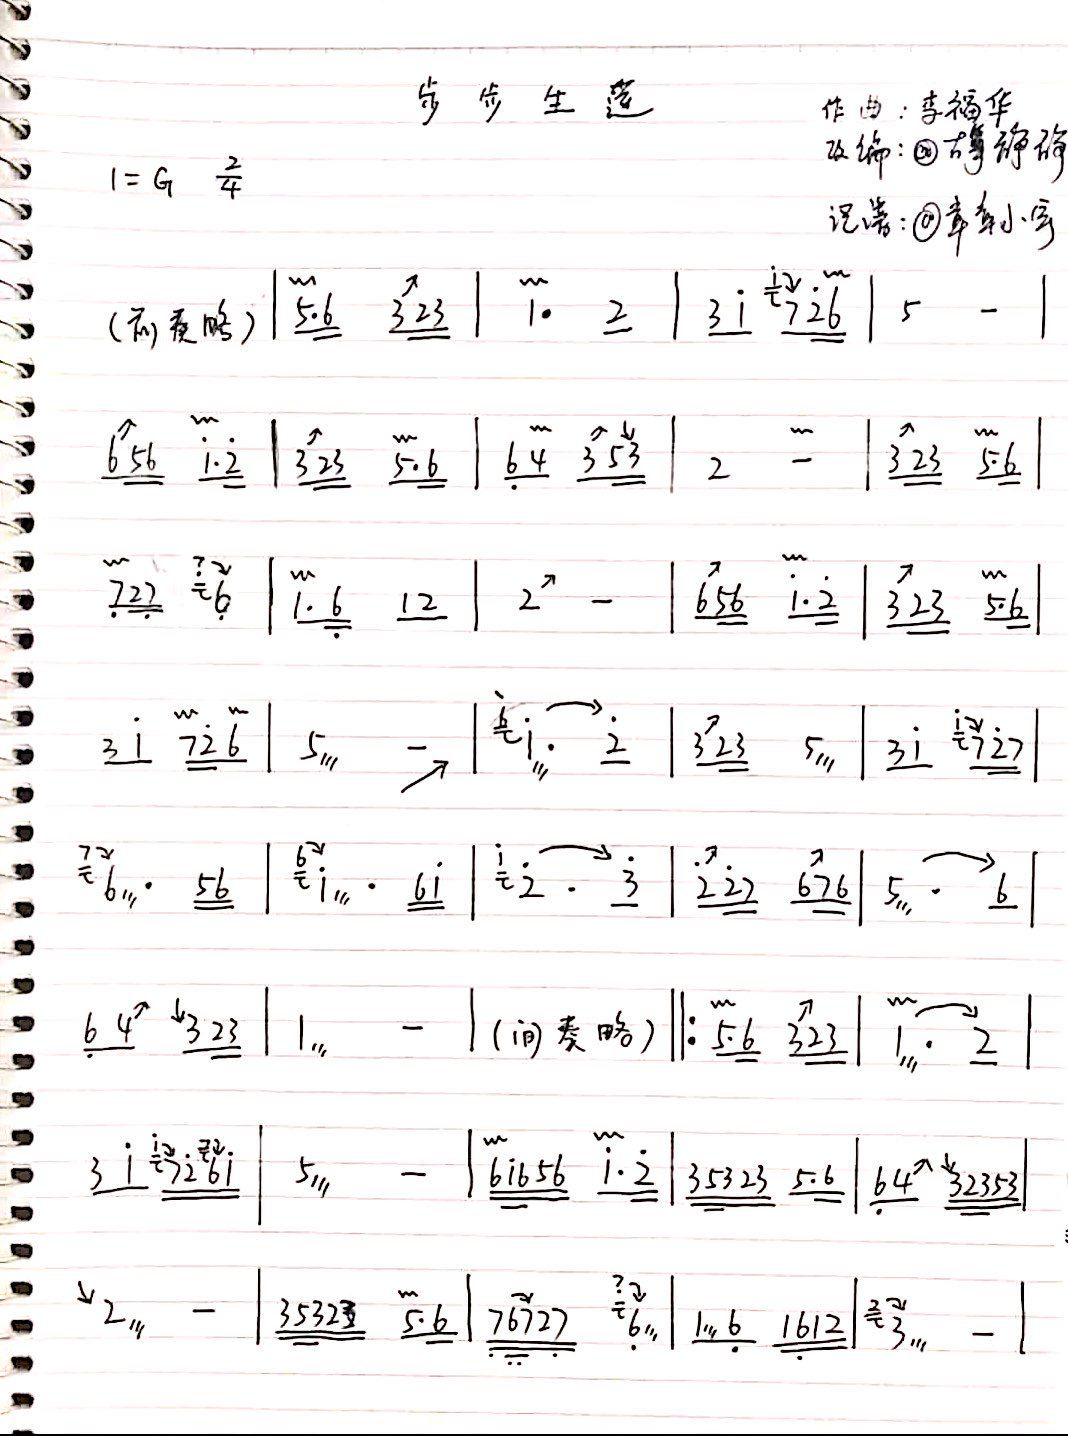 步步生莲
作曲：李福华
改编：古筝静静
1=G 2/4
记谱：
(前奏略) | 5·6 323 | 1· 2 | 3i 72̇6 | 5 - |
656 i·2̇ | 323 5·6 | 6̣4 353 | 2 - | 323 5·6 |
7̣27̣ 6̣ | 1·6̣ 12 | 2 - | 656 i·2̇ | 323 5·6 |
3i 72̇6 | 5 - | i· 2̇ | 323 5 | 3i 72̇7 |
6· 56 | i· 6i | 2̇· 3̇ | 2̇2̇7 676 | 5· 6 |
6̣4 323 | 1 - | (间奏略) ‖: 5·6 323 | 1· 2 |
3i 72̇6i | 5 - | 6i656 i·2̇ | 35323 5·6 | 6̣4 32353 |
2 - | 35323 5·6 | 7̣6̣7̣27̣ 6̣ | 16̣ 16̣12 | 3 - |